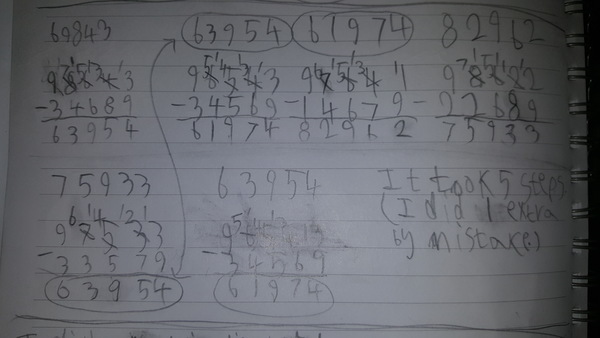 69843 63954 61974 82962
98643 96543 97641 98622
-34689 -34569 -14679 -22689
63954 61974 82962 75933
75933 63954 It took 5 steps
97533 96543 (I did 1 extra
-33579 -34569 by mistake.)
63954 61974